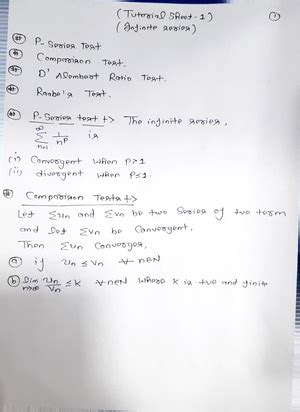 (Tutorial Sheet-1)
(Infinite series)
①
# P-Series Test
# Comparison Test.
# D' Alembert Ratio Test.
# Raabe's Test.
# P-Series test :→ The infinite series,
∞ Σ n=1 1/n^p is
(i) Convergent when P>1
(ii) divergent when P≤1.
# Comparison Tests :→
Let Σun and Σvn be two Series of +ve term
and let Σvn be Convergent.
Then Σun Converges,
(a) if un ≤ vn ∀ n∈N
(b) lim n→∞ un/vn ≤ K ∀ n∈N where K is +ve and finite